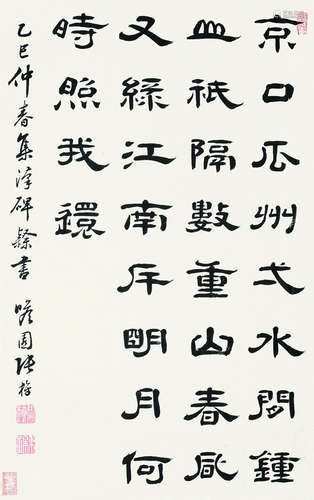 京口瓜州弌水間鍾
山祇隔數重山春風
又綠江南岸明月何
時照我還
乙巳仲春集漢碑隸書 瞻園張